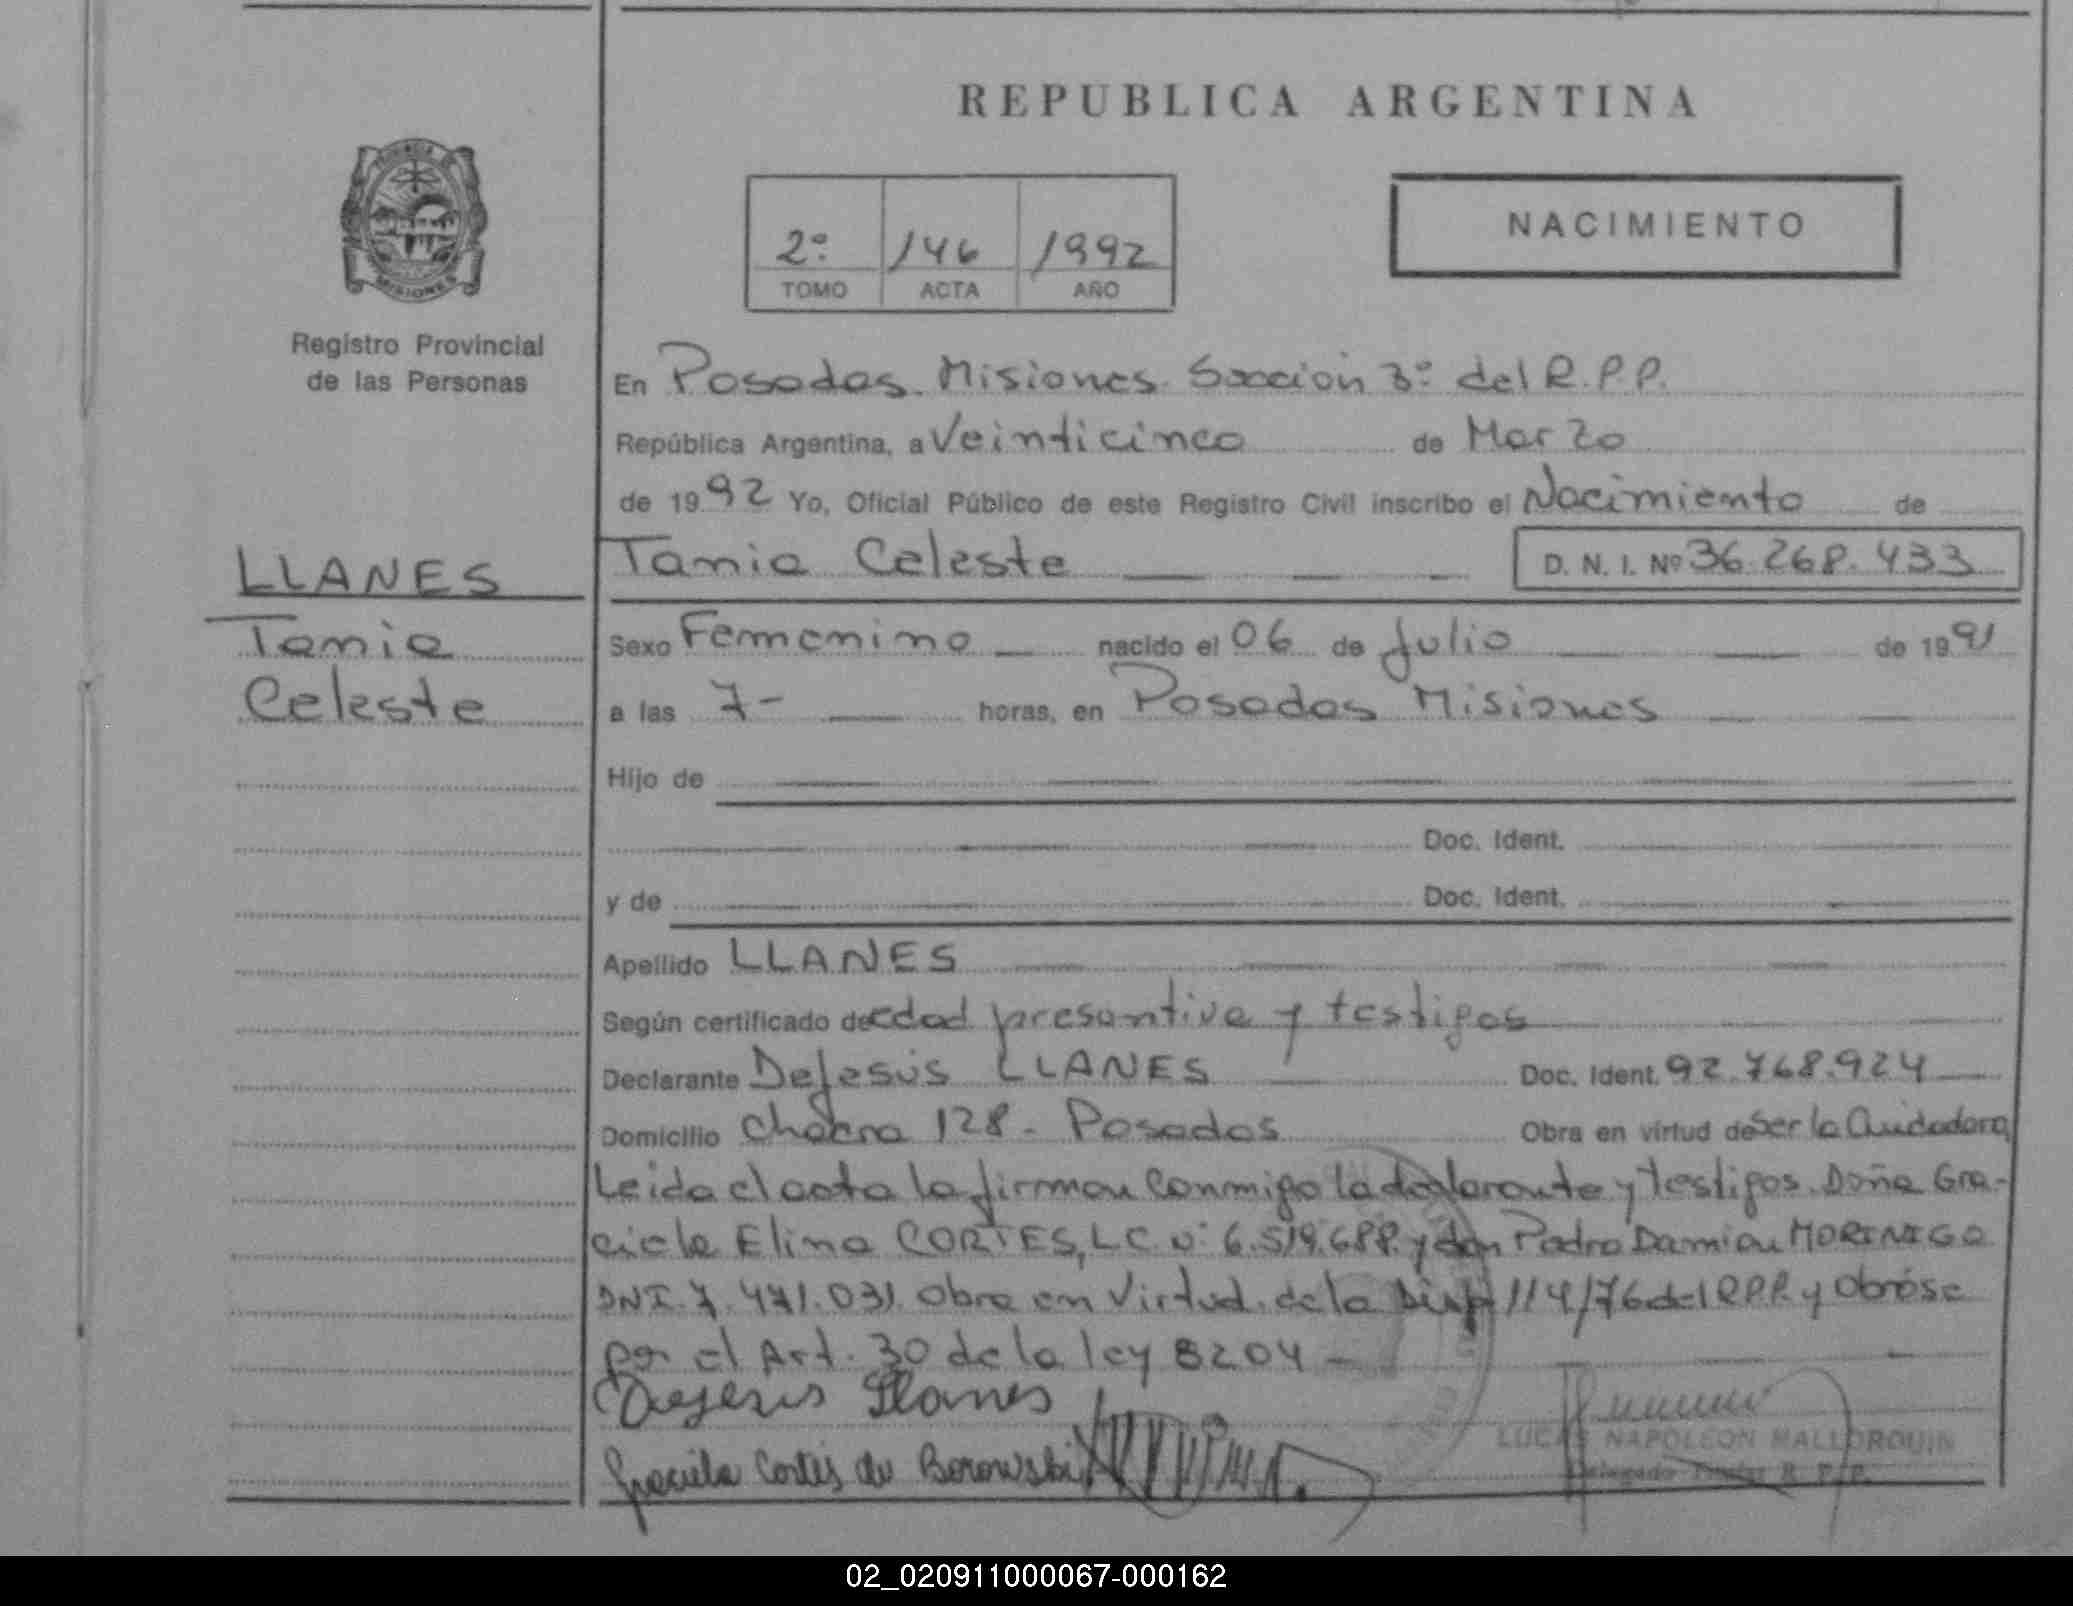 REPUBLICA ARGENTINA
PROVINCIA DE
MISIONES
Registro Provincial
de las Personas
2º 146 1992
TOMO ACTA AÑO
NACIMIENTO
En Posadas. Misiones. Sección 3º del R.P.P.
República Argentina, a Veinticinco de Marzo
de 1992 Yo, Oficial Público de este Registro Civil inscribo el Nacimiento de
Tania Celeste D. N. I. Nº 36.268.433
LLANES
Tania
Celeste
Sexo Femenino nacido el 06 de Julio de 1991
a las 7- horas, en Posadas Misiones
Hijo de
Doc. Ident.
y de Doc. Ident.
Apellido LLANES
Según certificado de edad presuntiva y testigos
Declarante DeJesús LLANES Doc. Ident. 92.768.924
Domicilio Chacra 128 - Posadas Obra en virtud de Ser la Cuidadora
Leida el acta la firman conmigo la declarante y testigos. Doña Gra-
ciela Elina CORTES, L.C. nº 6.519.688. y don Pedro Damian MORINIGO
DNI. 7.471.031. Obra en Virtud. de la Disp 114/76 del R.P.P. y Obróse
por el Art. 30 de la ley 8204 -
Dejesus Llanes
Graciela Cortés de Borowski
LUCAS NAPOLEON MALLORQUIN
Delegado Titular R. P. P.
02_020911000067-000162